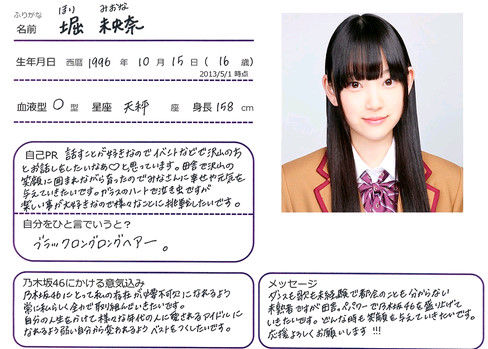 ふりがな ほり みおな
名前 堀 未央奈
生年月日 西暦 1996 年 10 月 15 日 ( 16 歳)
2013/5/1 時点
血液型 O 型 星座 天秤 座 身長 158 cm
自己PR 話すことが好きなのでイベントなどで沢山の方
とお話しをしたいなぁ〇と思っています。田舎で沢山の
笑顔に囲まれながら育ったのでみなさんに幸せや元気を
与えていきたいです。ガラスのハートで泣き虫ですが
楽しい事が大好きなので様々なことに挑戦したいです。
自分をひと言でいうと?
ブラックロングロングヘアー。
乃木坂46にかける意気込み
乃木坂46にとって私の存在が必要不可欠になれるよう
常に私らしく全力で取り組んでいきたいです。
自分の人生をかけて様々な年代の人に愛されるアイドルに
なれるよう弱い自分から変われるようベストをつくしたいです。
メッセージ
ダンスも歌も未経験で都会のことも分からない
未熟者ですが田舎パワーで乃木坂46を盛り上げて
いきたいです。どんな時も笑顔を与えていきたいです。
応援よろしくお願いします!!!